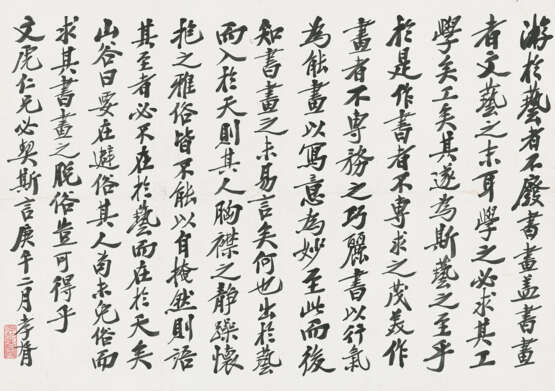 游於藝者不廢書畫蓋書畫
者文藝之末耳學之必求其工
學矣工矣其遂為斯藝之至乎
於是作書者不專求之茂美作
畫者不專務之巧麗書以行氣
為能畫以寫意為妙至此而後
知書畫之未易言矣何也出於藝
而入於天則其人胸襟之靜躁懷
抱之雅俗皆不能以自掩然則語
其至者必不在於藝而在於天矣
山谷曰要在避俗其人苟未免俗而
求其書畫之脫俗豈可得乎
文虎仁兄必契斯言庚午二月李